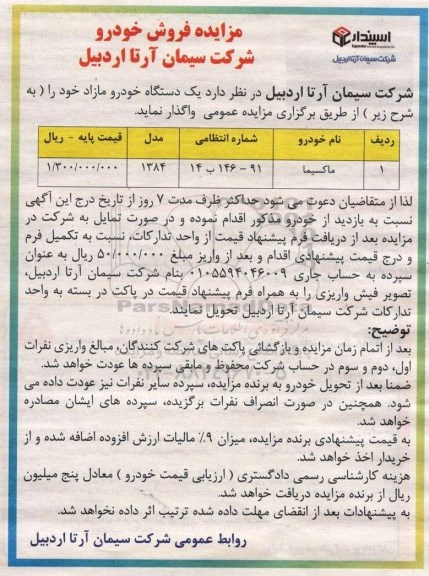 اسپندار
شرکت سیمان آرتا اردبیل
مزایده فروش خودرو
شرکت سیمان آرتا اردبیل
شرکت سیمان آرتا اردبیل در نظر دارد یک دستگاه خودرو مازاد خود را ( به
شرح زیر ) از طریق برگزاری مزایده عمومی واگذار نماید.
ردیف نام خودرو شماره انتظامی مدل قیمت پایه - ریال
۱ ماکسیما ۹۱ - ۱۴۶ ب ۱۴ ۱۳۸۴ ۱/۳۰۰/۰۰۰/۰۰۰
لذا از متقاضیان دعوت می شود حداکثر ظرف مدت ۷ روز از تاریخ درج این آگهی
نسبت به بازدید از خودرو مذکور اقدام نموده و در صورت تمایل به شرکت در
مزایده بعد از دریافت فرم پیشنهاد قیمت از واحد تدارکات، نسبت به تکمیل فرم
و درج قیمت پیشنهادی اقدام و بعد از واریز مبلغ ۵۰/۰۰۰/۰۰۰ ریال به عنوان
سپرده به حساب جاری ۰۱۰۵۵۹۴۰۴۶۰۰۹ بنام شرکت سیمان آرتا اردبیل،
تصویر فیش واریزی را به همراه فرم پیشنهاد قیمت در پاکت در بسته به واحد
تدارکات شرکت سیمان آرتا اردبیل تحویل نمایند.
توضیح:
بعد از اتمام زمان مزایده و بازگشائی پاکت های شرکت کنندگان، مبالغ واریزی نفرات
اول، دوم و سوم در حساب شرکت محفوظ و مابقی سپرده ها عودت خواهد شد.
ضمنا بعد از تحویل خودرو به برنده مزایده، سپرده سایر نفرات نیز عودت داده می
شود. همچنین در صورت انصراف نفرات برگزیده، سپرده های ایشان مصادره
خواهد شد.
به قیمت پیشنهادی برنده مزایده، میزان ۹٪ مالیات ارزش افزوده اضافه شده و از
خریدار اخذ خواهد شد.
هزینه کارشناسی رسمی دادگستری ( ارزیابی قیمت خودرو ) معادل پنج میلیون
ریال از برنده مزایده دریافت خواهد شد.
به پیشنهادات بعد از انقضای مهلت داده شده ترتیب اثر داده نخواهد شد.
روابط عمومی شرکت سیمان آرتا اردبیل